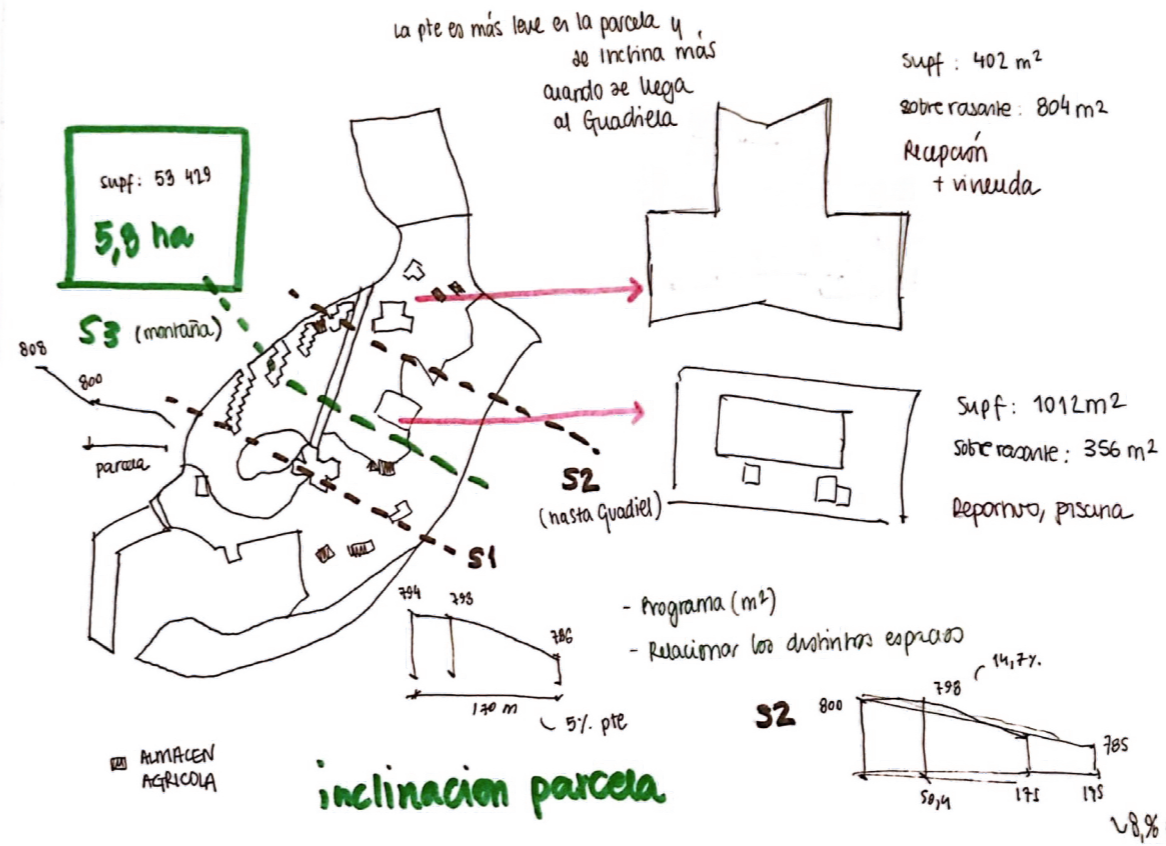 La pte es más leve en la parcela y
se inclina más
cuando se llega
al Guadiela
Supf : 402 m²
sobre rasante : 804 m²
Recepción
+ vivienda
supf: 53 429
5,8 ha
S3 (montaña)
808
800
parcela
S2
(hasta Guadiel)
S1
Supf: 1012 m²
Sobre rasante: 356 m²
Deportivo, piscina
794
793
786
170 m
5% pte
- Programa (m²)
- Relacionar los distintos espacios
14,7%
S2
800
798
785
50,4
175
195
8,%
ALMACEN
AGRICOLA
inclinacion parcela